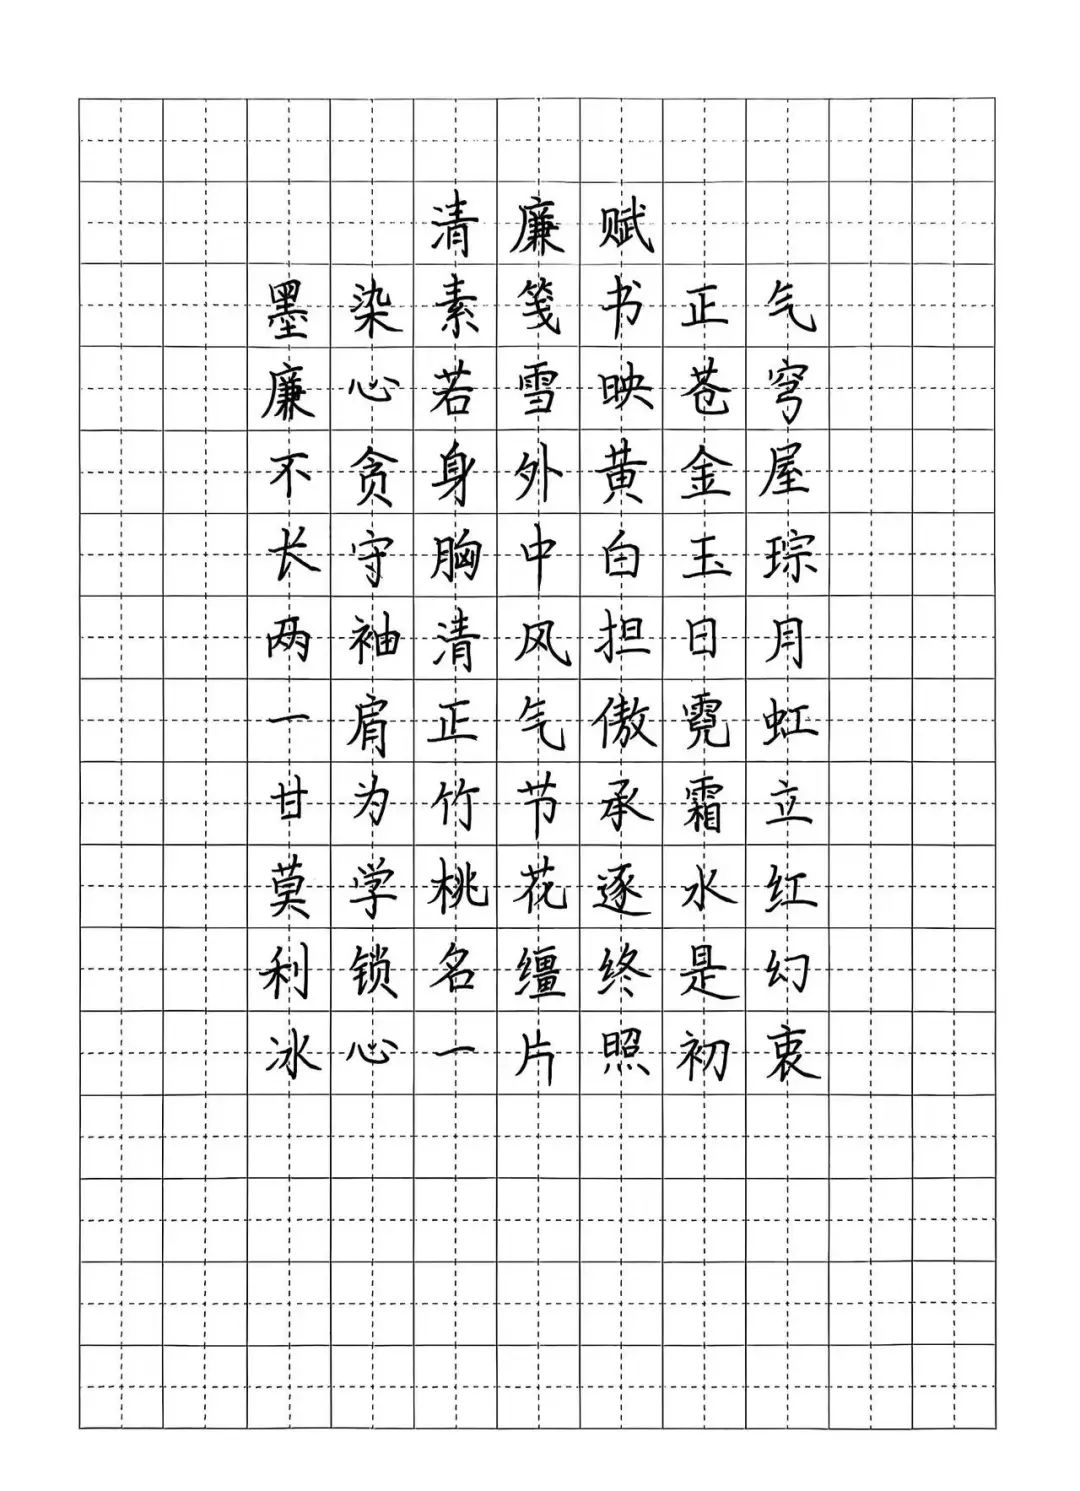 清廉赋
墨染素笺书正气
廉心若雪映苍穹
不贪身外黄金屋
长守胸中白玉琮
两袖清风担日月
一肩正气傲霓虹
甘为竹节承霜立
莫学桃花逐水红
利锁名缰终是幻
冰心一片照初衷